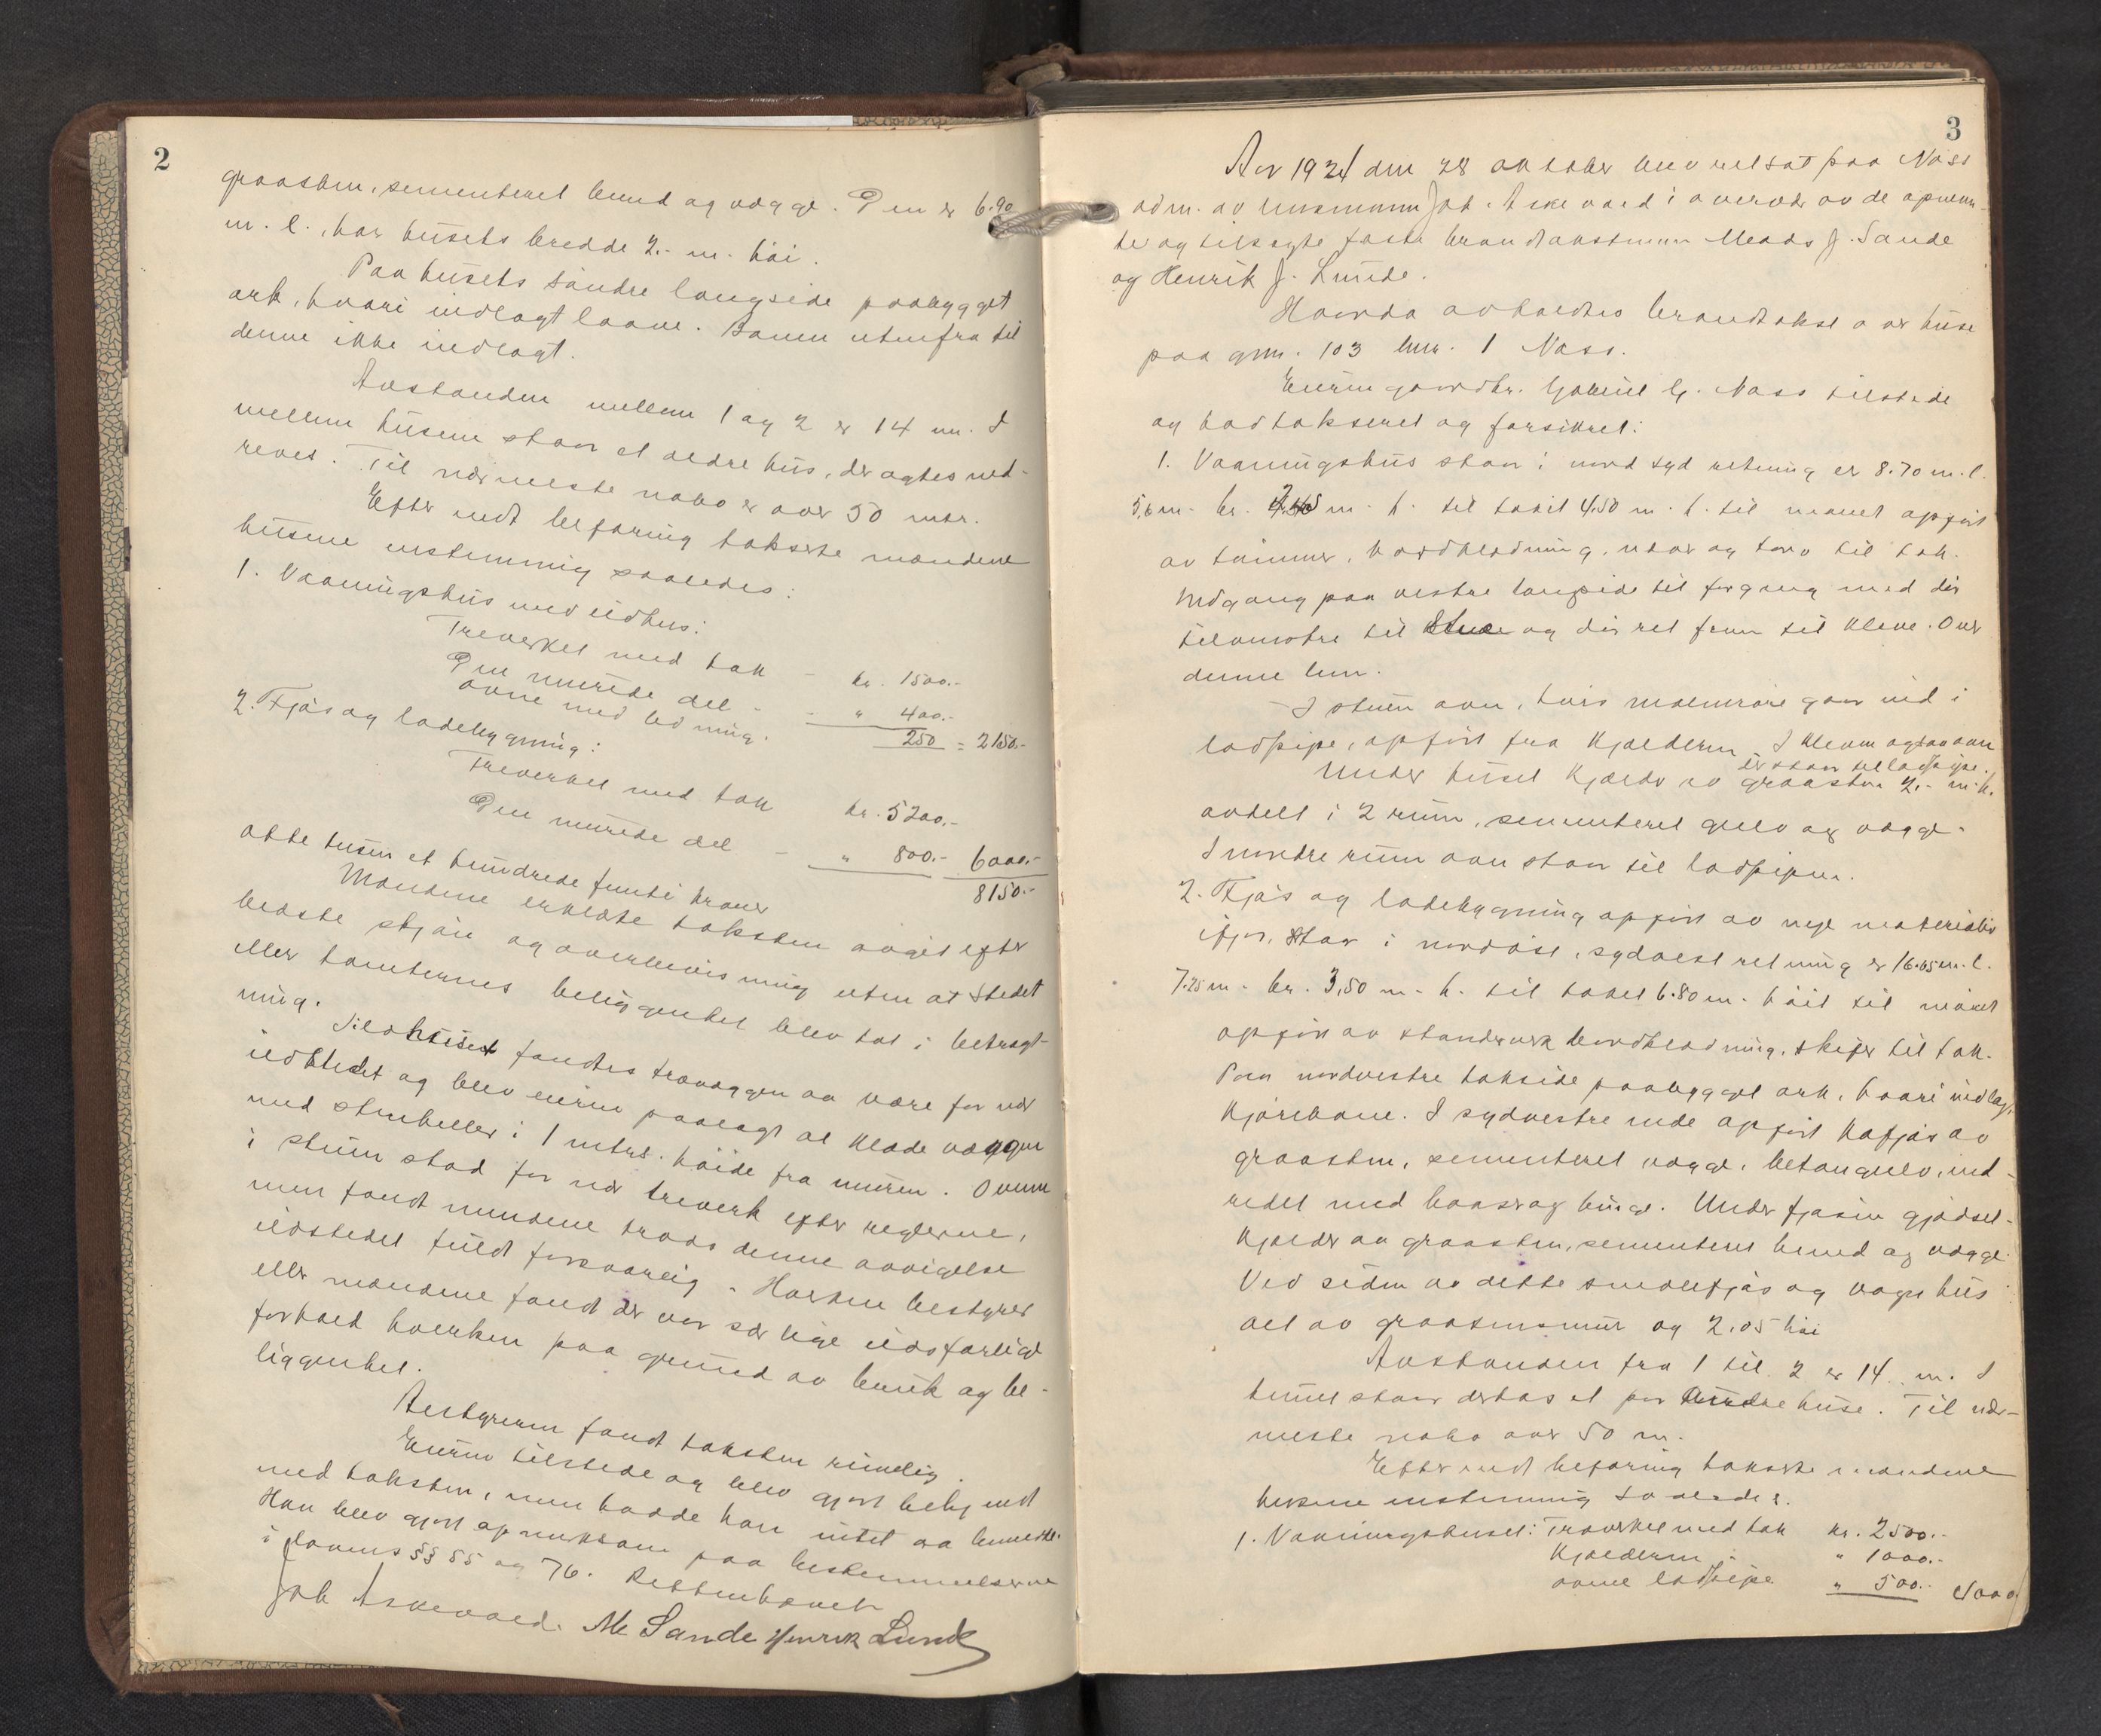 2
graasten, sementeret bund og vægge. Den er 6.90
m. l., har husets bredde 2.- m. høi.
Paa husets søndre langside paabygget
ark, hvori indlagt laave. Banen utenfra til
denne ikke indlagt.
Avstanden mellem 1 og 2 er 14 m. I
mellem husene staar et ældre hus, der agtes ned-
revet. Til nærmeste nabo er over 50 mtr.
Efter endt befaring takserte mændene
husene enstemmig saaledes:
1. Vaaningshus med ildhus:
Treverket med tak - kr. 1500.-
Den murede del - - " 400.-
ovne med ledning. 250 = 2150.-
2. Fjøs og ladebygning:
Treverket med tak kr. 5200.-
Den murede del - " 800.- 6000.-
8150.-
otte tusen et hundrede femti kroner
Mændene erklærte taksten avgit efter
bedste skjøn og overbevisning uten at stedet
eller tomternes beliggenhet blev tat i betragt-
ning.
I ildhuset fandtes trævæggen aa være for nær
ildstedet og blev eieren paalagt at klæde væggen
med stenheller i 1 mtrs. høide fra muren. Ovnen
i stuen stod for nær treverk efter reglerne,
men fandt mændene trods denne avvigelse
ildstedet fuldt forsvarlig. Hverken bestyrer
eller mændene fandt der var særlige ildsfarlige
forhold hverken paa grund av bruk og be-
liggenhet.
Bestyreren fandt taksten rimelig.
Eieren tilstede og blev gjort bekjendt
med taksten, men hadde han intet aa bemerke.
Han blev gjort opmerksom paa bestemmelserne
i lovens §§ 55 og 76. Rettenhævet
Joh Askevold. M Sande Henrik Lunde
3
Aar 1924 den 28 oktober blev ret sat paa Næss
adm. av lensmann Joh. Askevold i overvær av de opnævn-
te og tilsagte faste brandtakstmænn Meads J. Sande
og Henrik J. Lunde.
Hvorda avholdtes brandtakst over huse
paa gnr. 103 bnr. 1 Næss.
Eieren gaardbr. Gabriel G. Næss tilstede
og bad taksert og forsikret:
1. Vaaningshus staar i nord syd retning er 8.70 m. l.
5,6 m. br. m. h. til taket 4.50 m. h. til mønet opført
av tømmer, bordklædning, næver og torv til tak.
Indgang paa vestre langside til forgang med dør
tilvenstre til Stue og dør ret frem til kleve. Over
denne lem.
I stuen ovn, hvis malmrøre gaar ind i
ladpipe, opført fra kjælderen. I kleven ogsaa ovn
der staar til ladpipe.
Under huset kjælder av graasten 2.- m. h.
avdelt i 2 rum, sementeret gulv og vægge.
I nordre rum ovn staar til ladpipen.
2. Fjøs og ladebygning opført av nye materialer
ifjor, Staar i nordøst, sydvest retning er 16.65 m. l.
7.25 m. br. 3,50 m. h. til taket 6.80 m. høit til mønet
opført av standverk bordklædning, skifer til tak.
Paa nordvestre takside paabygget ark, hvori indlagt
kjørebane. I sydvestre ende opført kufjøs av
graasten, sementeret vægge, betongulv, ind-
redet med baaser og binge. Under fjøsen gjødsel-
kjælder av graasten, sementeret bund og vægge.
Ved siden av dette smalefjøs og vognhus
alt av graastensmur og 2.05 høi
Avstanden fra 1 til 2 er 14 m. I
tunet staar desuten et par huse. Til nær-
meste nabo over 50 m.
Efter endt befaring takserte mændene
husene enstemmig saaledes.
1. Vaaningshuset: Træverket med tak kr. 2500.-
Kjælderen - " 1000.-
ovne ladpipe " 500.- 4000